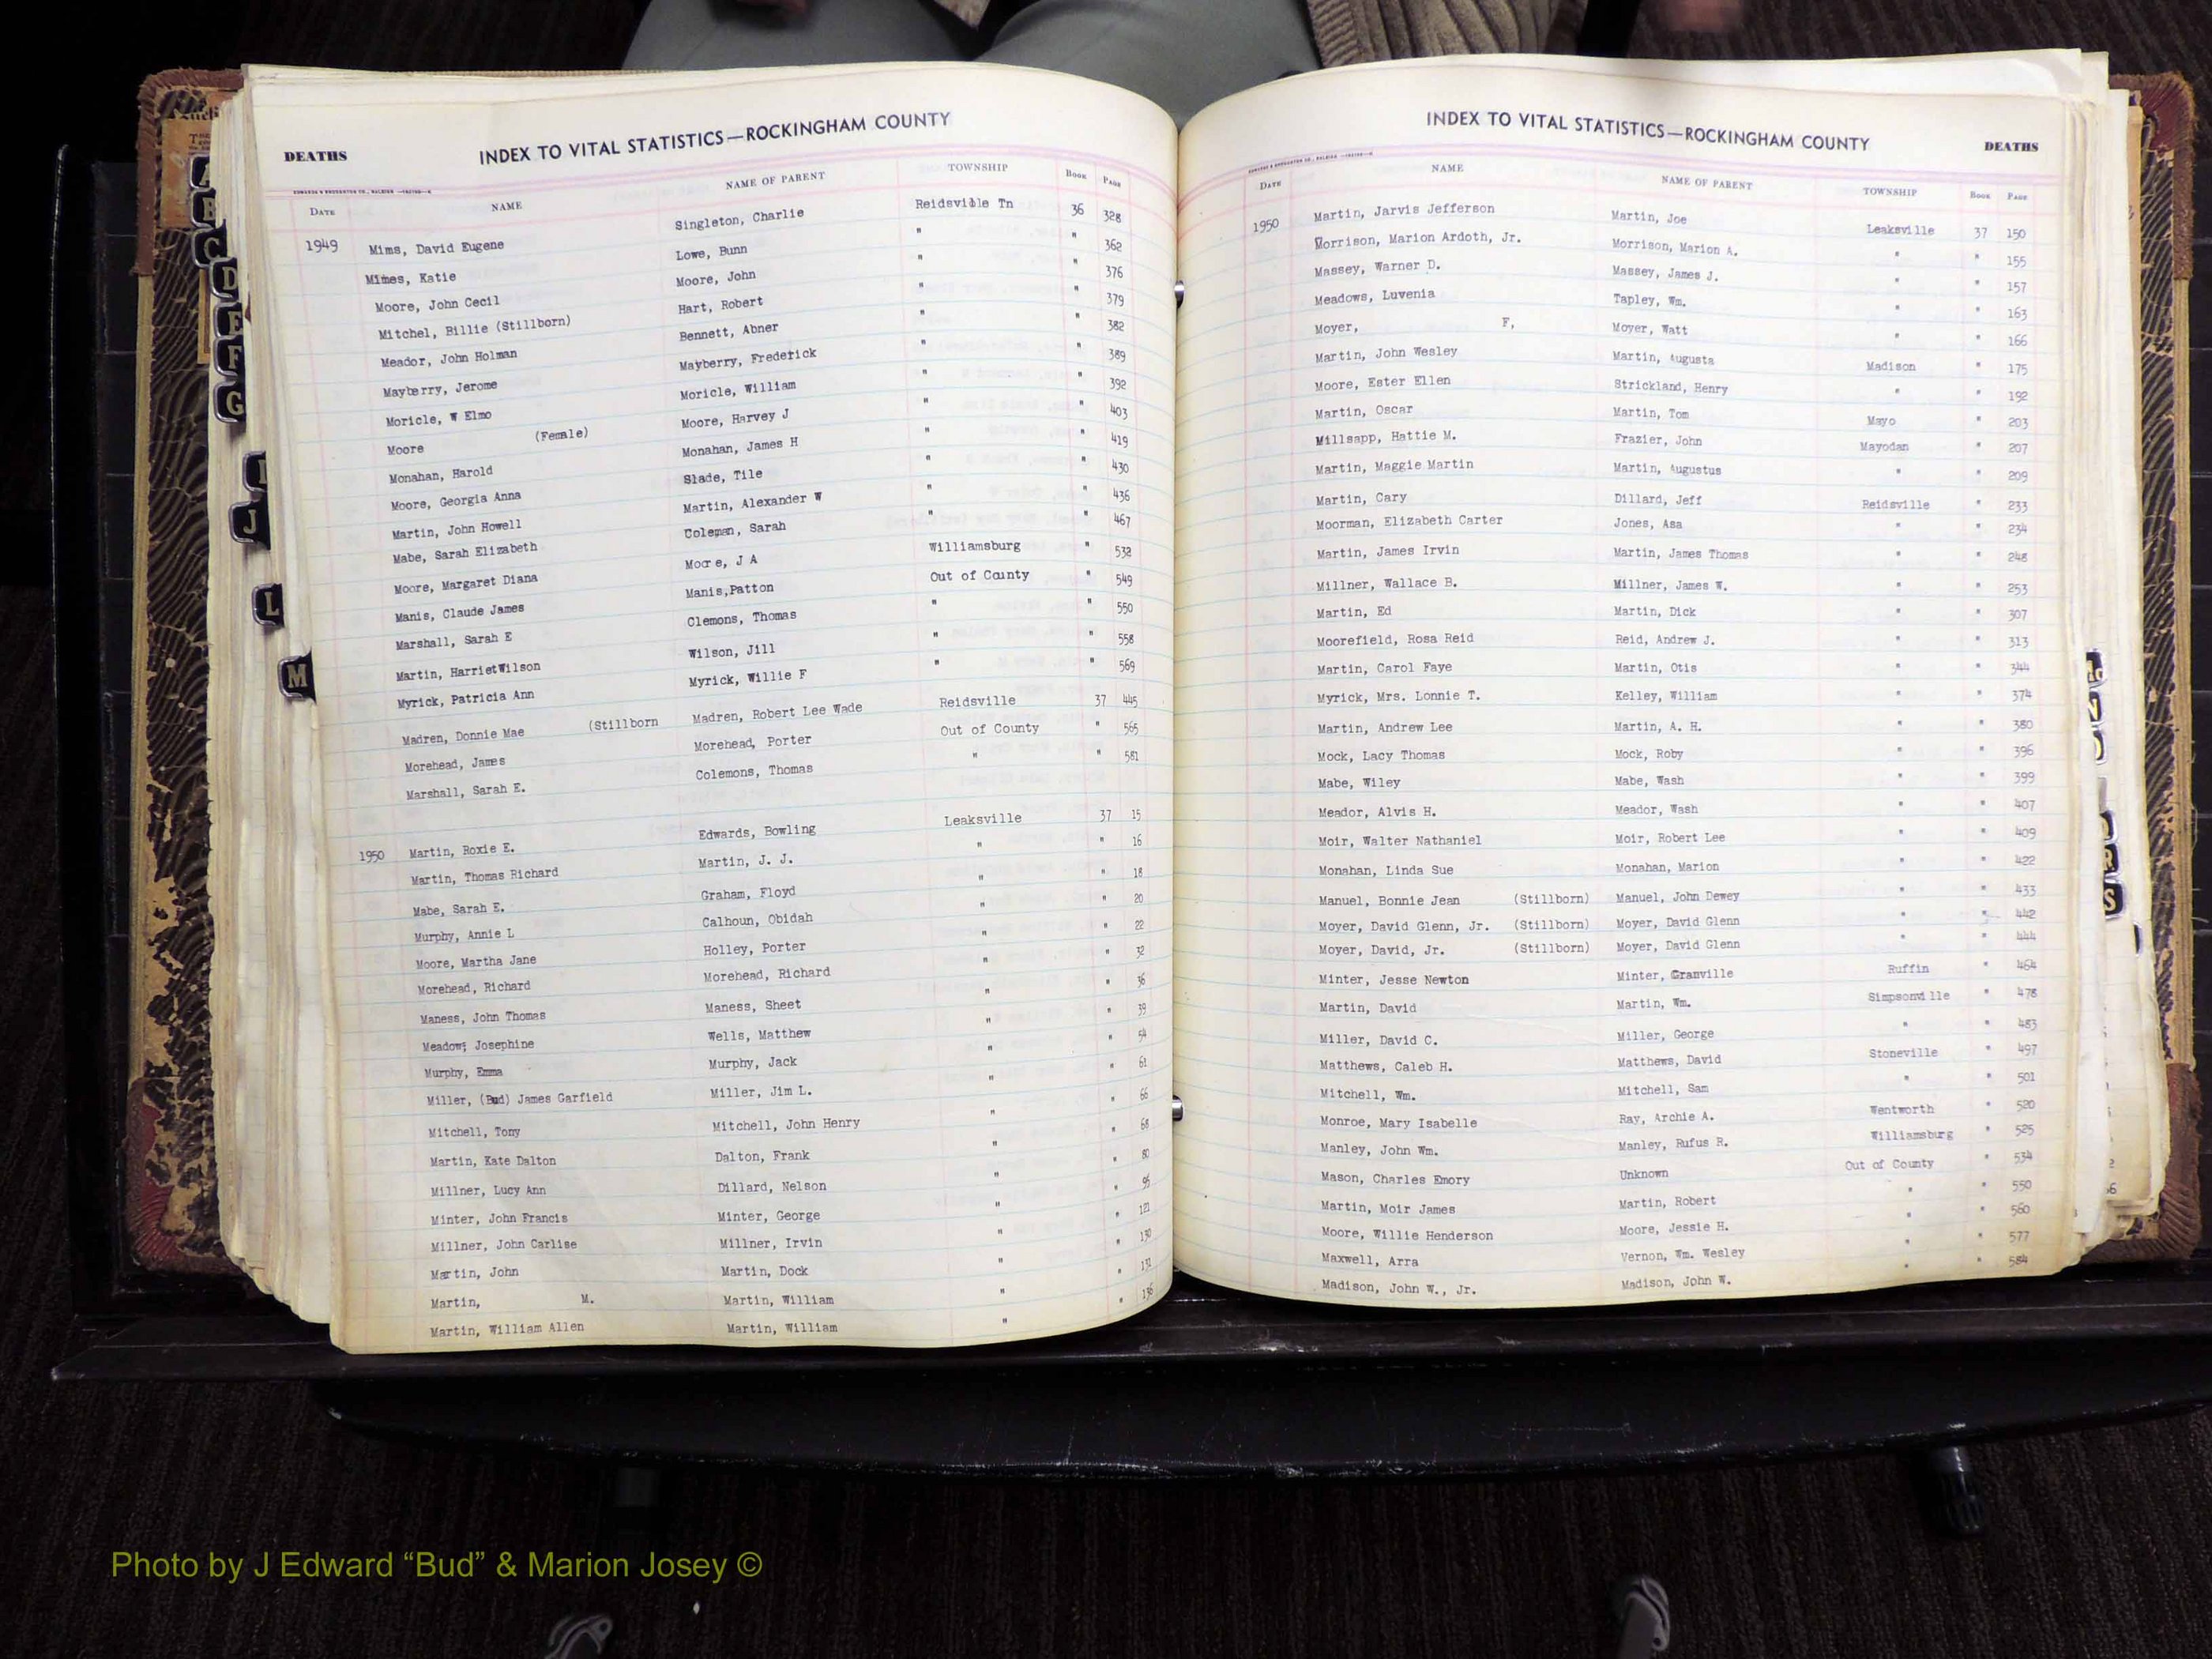 DEATHS INDEX TO VITAL STATISTICS—ROCKINGHAM COUNTY
DATE NAME NAME OF PARENT TOWNSHIP BOOK PAGE
1949 Mims, David Eugene Singleton, Charlie Reidsville Tn 36 328
Mimes, Katie Lowe, Bunn " " 362
Moore, John Cecil Moore, John " " 376
Mitchel, Billie (Stillborn) Hart, Robert " " 379
Meador, John Holman Bennett, Abner " " 382
Mayberry, Jerome Mayberry, Frederick " " 389
Moricle, W Elmo Moricle, William " " 392
Moore (Female) Moore, Harvey J " " 403
Monahan, Harold Monahan, James H " " 419
Moore, Georgia Anna Slade, Tile " " 430
Martin, John Howell Martin, Alexander W " " 436
Mabe, Sarah Elizabeth Coleman, Sarah " " 467
Moore, Margaret Diana Moore, J A Williamsburg " 532
Manis, Claude James Manis,Patton Out of County " 549
Marshall, Sarah E Clemons, Thomas " " 550
Martin, HarrietWilson Wilson, Jill " " 558
Myrick, Patricia Ann Myrick, Willie F " " 569
Madren, Donnie Mae (Stillborn Madren, Robert Lee Wade Reidsville 37 445
Morehead, James Morehead, Porter Out of County " 565
Marshall, Sarah E. Colemons, Thomas " " 581
1950 Martin, Roxie E. Edwards, Bowling Leaksville 37 15
Martin, Thomas Richard Martin, J. J. " " 16
Mabe, Sarah E. Graham, Floyd " " 18
Murphy, Annie L Calhoun, Obidah " " 20
Moore, Martha Jane Holley, Porter " " 22
Morehead, Richard Morehead, Richard " " 32
Maness, John Thomas Maness, Sheet " " 36
Meadows, Josephine Wells, Matthew " " 39
Murphy, Emma Murphy, Jack " " 54
Miller, (Bud) James Garfield Miller, Jim L. " " 61
Mitchell, Tony Mitchell, John Henry " " 66
Martin, Kate Dalton Dalton, Frank " " 68
Millner, Lucy Ann Dillard, Nelson " " 80
Minter, John Francis Minter, George " " 95
Millner, John Carlise Millner, Irvin " " 121
Martin, John Martin, Dock " " 130
Martin, M. Martin, William " " 131
Martin, William Allen Martin, William " " 136
INDEX TO VITAL STATISTICS—ROCKINGHAM COUNTY DEATHS
DATE NAME NAME OF PARENT TOWNSHIP BOOK PAGE
1950 Martin, Jarvis Jefferson Martin, Joe Leaksville 37 150
Morrison, Marion Ardoth, Jr. Morrison, Marion A. " " 155
Massey, Warner D. Massey, James J. " " 157
Meadows, Luvenia Tapley, Wm. " " 163
Moyer, F, Moyer, Watt " " 166
Martin, John Wesley Martin, Augusta Madison " 175
Moore, Ester Ellen Strickland, Henry " " 192
Martin, Oscar Martin, Tom Mayo " 203
Millsapp, Hattie M. Frazier, John Mayodan " 207
Martin, Maggie Martin Martin, Augustus " " 209
Martin, Cary Dillard, Jeff Reidsville " 233
Moorman, Elizabeth Carter Jones, Asa " " 234
Martin, James Irvin Martin, James Thomas " " 248
Millner, Wallace B. Millner, James W. " " 253
Martin, Ed Martin, Dick " " 307
Moorefield, Rosa Reid Reid, Andrew J. " " 313
Martin, Carol Faye Martin, Otis " " 344
Myrick, Mrs. Lonnie T. Kelley, William " " 374
Martin, Andrew Lee Martin, A. H. " " 380
Mock, Lacy Thomas Mock, Roby " " 396
Mabe, Wiley Mabe, Wash " " 399
Meador, Alvis H. Meador, Wash " " 407
Moir, Walter Nathaniel Moir, Robert Lee " " 409
Monahan, Linda Sue Monahan, Marion " " 422
Manuel, Bonnie Jean (Stillborn) Manuel, John Dewey " " 433
Moyer, David Glenn, Jr. (Stillborn) Moyer, David Glenn " " 442
Moyer, David, Jr. (Stillborn) Moyer, David Glenn " " 444
Minter, Jesse Newton Minter, Granville Ruffin " 464
Martin, David Martin, Wm. Simpsonville " 478
Miller, David C. Miller, George " " 483
Matthews, Caleb H. Matthews, David Stoneville " 497
Mitchell, Wm. Mitchell, Sam " " 501
Monroe, Mary Isabelle Ray, Archie A. Wentworth " 520
Manley, John Wm. Manley, Rufus R. Williamsburg " 525
Mason, Charles Emory Unknown Out of County " 534
Martin, Moir James Martin, Robert " " 550
Moore, Willie Henderson Moore, Jessie H. " " 560
Maxwell, Arra Vernon, Wm. Wesley " " 577
Madison, John W., Jr. Madison, John W. " " 584
A
B
C
D
E
F
G
J
L
M
N
R
S
Photo by J Edward “Bud” & Marion Josey ©